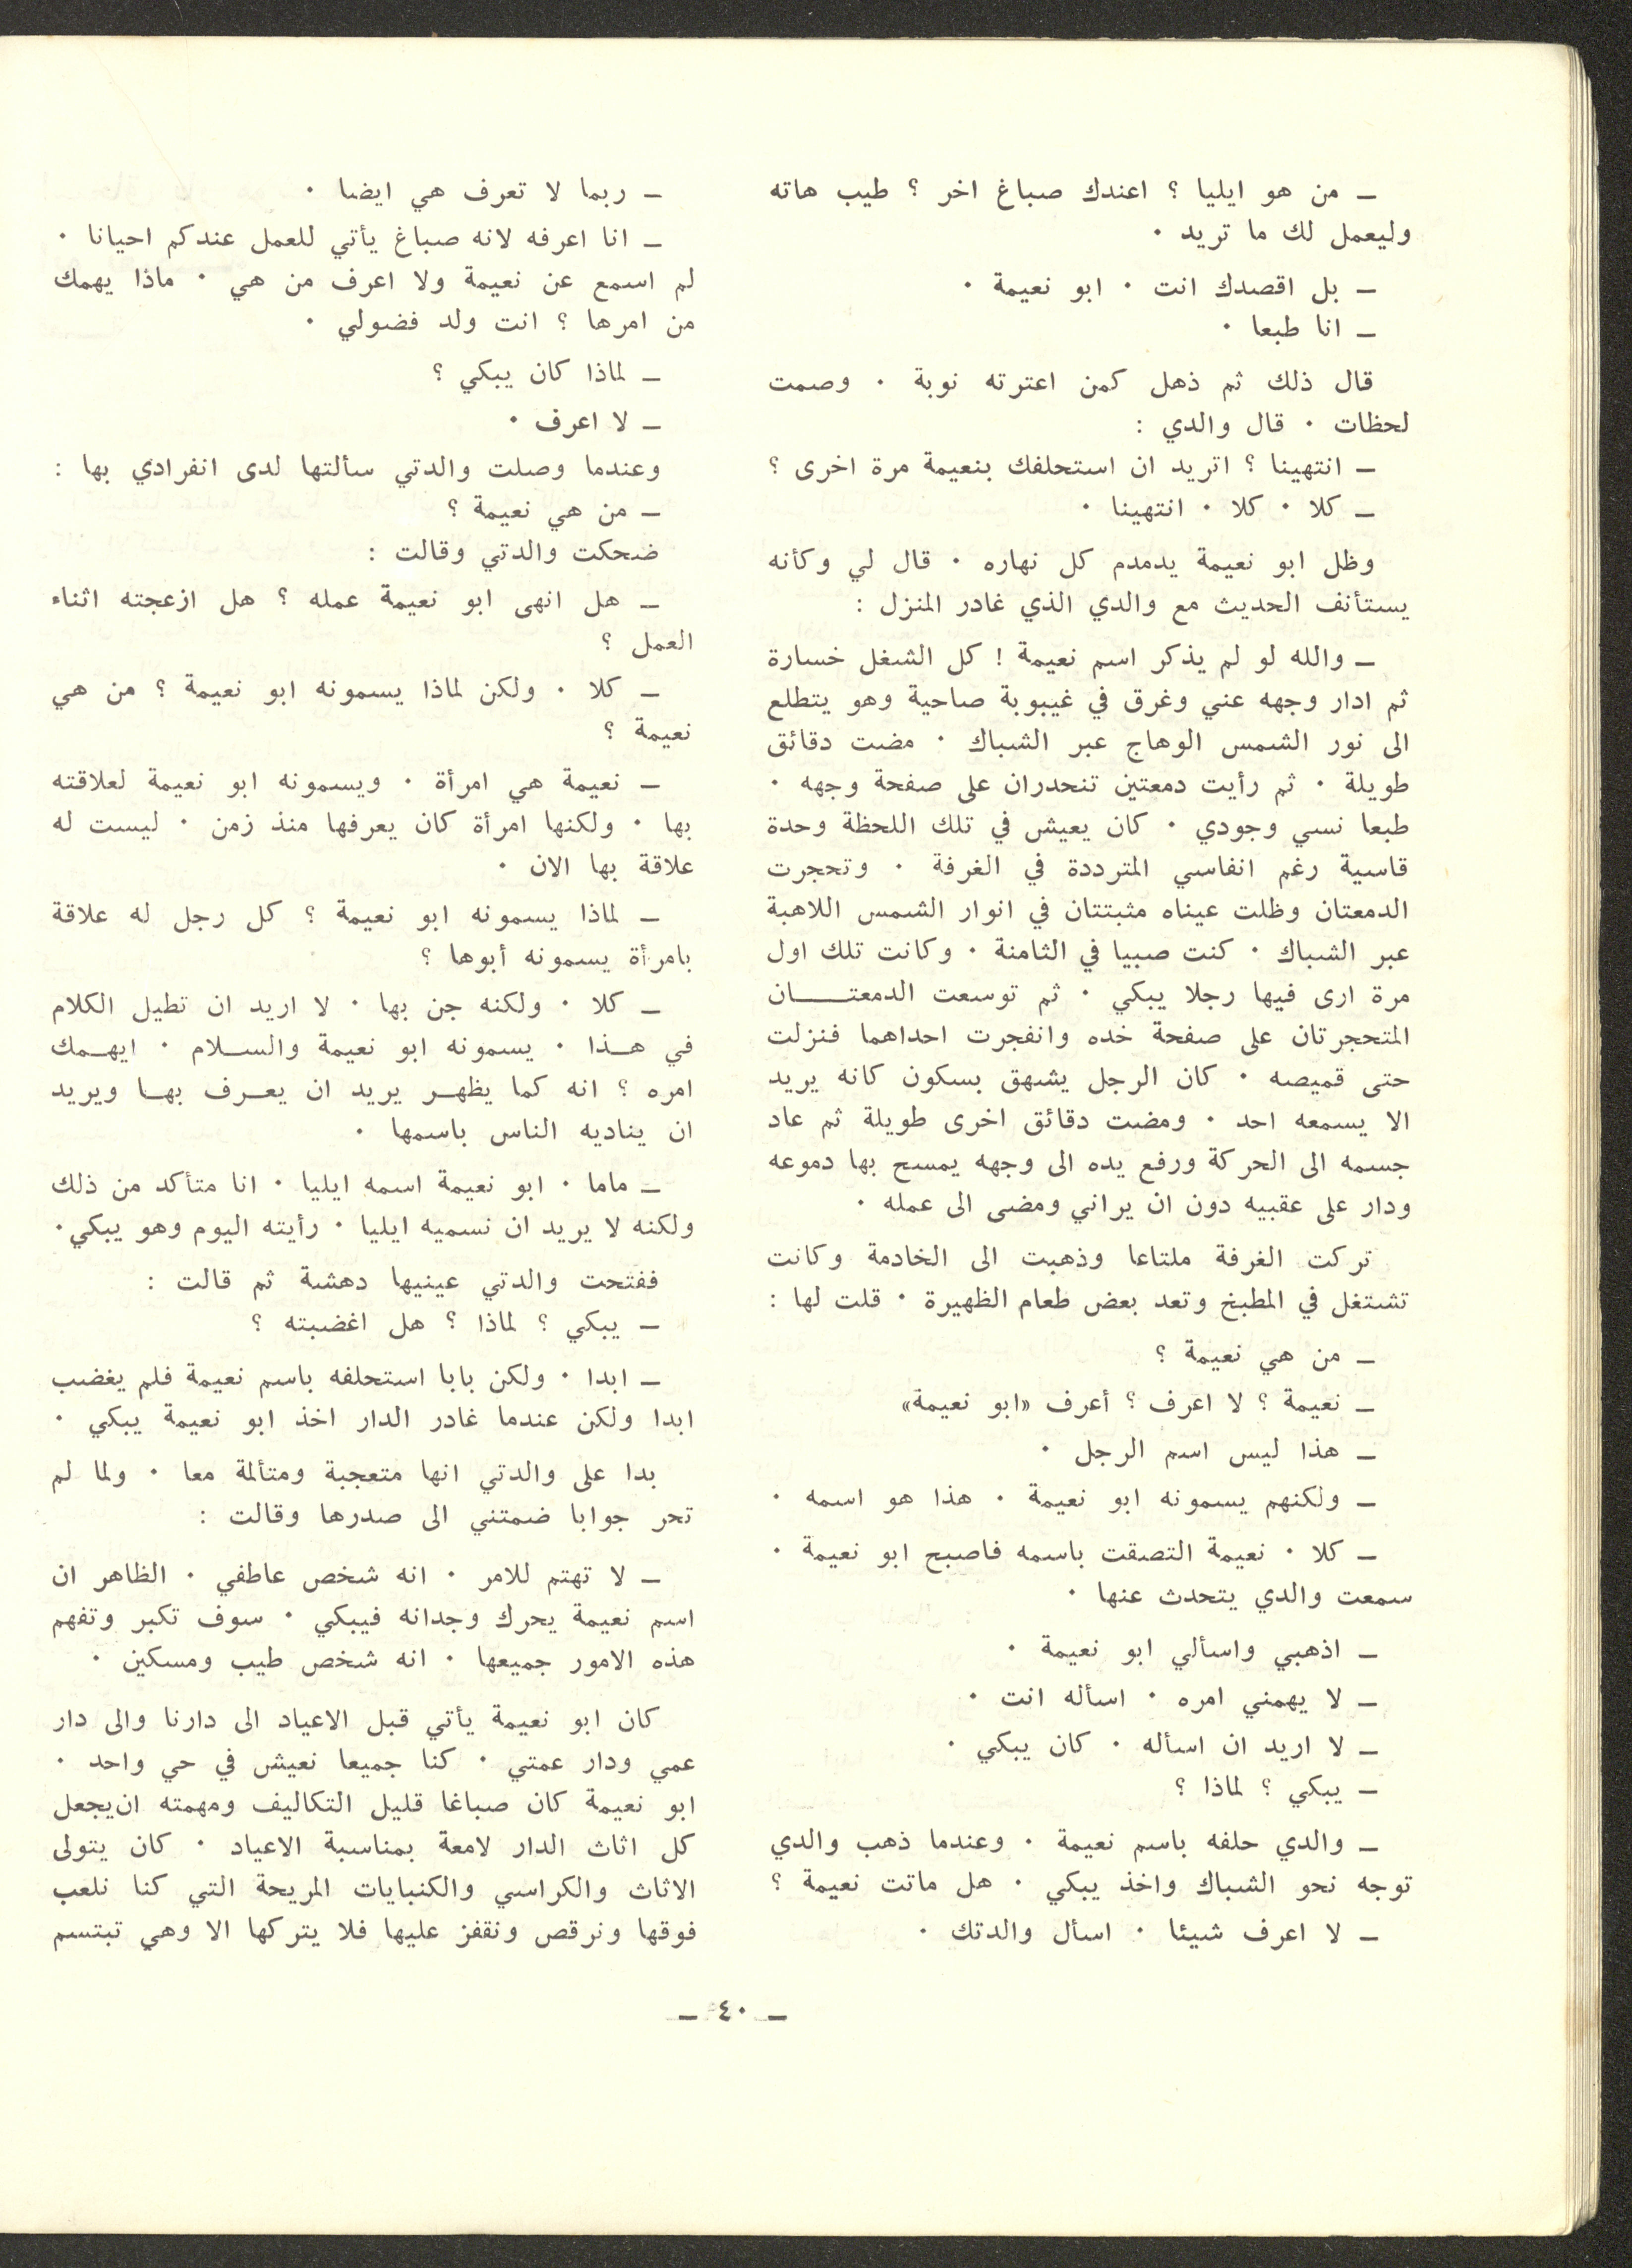 ـ من هو ايليا ؟ اعندك صباغ اخر ؟ طيب هاته
وليعمل لك ما تريد ٠
ـ بل اقصدك انت ٠ ابو نعيمة ٠
ـ انا طبعا ٠
قال ذلك ثم ذهل كمن اعترته نوبة ٠ وصمت
لحظات ٠ قال والدي :
ـ انتهينا ؟ اتريد ان استحلفك بنعيمة مرة اخرى ؟
ـ كلا ٠ كلا ٠ انتهينا ٠
وظل ابو نعيمة يدمدم كل نهاره ٠ قال لي وكأنه
يستأنف الحديث مع والدي الذي غادر المنزل :
ـ والله لو لم يذكر اسم نعيمة ! كل الشغل خسارة
ثم ادار وجهه عني وغرق في غيبوبة صاحية وهو يتطلع
الى نور الشمس الوهاج عبر الشباك ٠ مضت دقائق
طويلة ٠ ثم رأيت دمعتين تنحدران على صفحة وجهه ٠
طبعا نسي وجودي ٠ كان يعيش في تلك اللحظة وحدة
قاسية رغم انفاسي المترددة في الغرفة ٠ وتحجرت
الدمعتان وظلت عيناه مثبتتان في انوار الشمس اللاهبة
عبر الشباك ٠ كنت صبيا في الثامنة ٠ وكانت تلك اول
مرة ارى فيها رجلا يبكي ٠ ثم توسعت الدمعتـــــان
المتحجرتان على صفحة خده وانفجرت احداهما فنزلت
حتى قميصه ٠ كان الرجل يشهق بسكون كانه يريد
الا يسمعه احد ٠ ومضت دقائق اخرى طويلة ثم عاد
جسمه الى الحركة ورفع يده الى وجهه يمسح بها دموعه
ودار على عقبيه دون ان يراني ومضى الى عمله ٠
تركت الغرفة ملتاعا وذهبت الى الخادمة وكانت
تشتغل في المطبخ وتعد بعض طعام الظهيرة ٠ قلت لها :
ـ من هي نعيمة ؟
ـ نعيمة ؟ لا اعرف ؟ أعرف «ابو نعيمة»
ـ هذا ليس اسم الرجل ٠
ـ ولكنهم يسمونه ابو نعيمة ٠ هذا هو اسمه ٠
ـ كلا ٠ نعيمة التصقت باسمه فاصبح ابو نعيمة ٠
سمعت والدي يتحدث عنها ٠
ـ اذهبي واسألي ابو نعيمة ٠
ـ لا يهمني امره ٠ اسأله انت ٠
ـ لا اريد ان اسأله ٠ كان يبكي ٠
ـ يبكي ؟ لماذا ؟
ـ والدي حلفه باسم نعيمة ٠ وعندما ذهب والدي
توجه نحو الشباك واخذ يبكي ٠ هل ماتت نعيمة ؟
ـ لا اعرف شيئا ٠ اسأل والدتك ٠
ـ ربما لا تعرف هي ايضا ٠
ـ انا اعرفه لانه صباغ يأتي للعمل عندكم احيانا ٠
لم اسمع عن نعيمة ولا اعرف من هي ٠ ماذا يهمك
من امرها ؟ انت ولد فضولي ٠
ـ لماذا كان يبكي ؟
ـ لا اعرف ٠
وعندما وصلت والدتي سألتها لدى انفرادي بها :
ـ من هي نعيمة ؟
ضحكت والدتي وقالت :
ـ هل انهى ابو نعيمة عمله ؟ هل ازعجته اثناء
العمل ؟
ـ كلا ٠ ولكن لماذا يسمونه ابو نعيمة ؟ من هي
نعيمة ؟
ـ نعيمة هي امرأة ٠ ويسمونه ابو نعيمة لعلاقته
بها ٠ ولكنها امرأة كان يعرفها منذ زمن ٠ ليست له
علاقة بها الان ٠
ـ لماذا يسمونه ابو نعيمة ؟ كل رجل له علاقة
بامرأة يسمونه أبوها ؟
ـ كلا ٠ ولكنه جن بها ٠ لا اريد ان تطيل الكلام
في هـــذا ٠ يسمونه ابو نعيمة والســـلام ٠ ايهـــمك
امره ؟ انه كما يظهـــر يريد ان يعـــرف بهـــا ويريد
ان يناديه الناس باسمها ٠
ـ ماما ٠ ابو نعيمة اسمه ايليا ٠ انا متأكد من ذلك
ولكنه لا يريد ان نسميه ايليا ٠ رأيته اليوم وهو يبكي ٠
ففتحت والدتي عينيها دهشة ثم قالت :
ـ يبكي ؟ لماذا ؟ هل اغضبته ؟
ـ ابدا ٠ ولكن بابا استحلفه باسم نعيمة فلم يغضب
ابدا ولكن عندما غادر الدار اخذ ابو نعيمة يبكي ٠
بدا على والدتي انها متعجبة ومتألمة معا ٠ ولما لم
تحر جوابا ضمتني الى صدرها وقالت :
ـ لا تهتم للامر ٠ انه شخص عاطفي ٠ الظاهر ان
اسم نعيمة يحرك وجدانه فيبكي ٠ سوف تكبر وتفهم
هذه الامور جميعها ٠ انه شخص طيب ومسكين ٠
كان ابو نعيمة يأتي قبل الاعياد الى دارنا والى دار
عمي ودار عمتي ٠ كنا جميعا نعيش في حي واحد ٠
ابو نعيمة كان صباغا قليل التكاليف ومهمته ان يجعل
كل اثاث الدار لامعة بمناسبة الاعياد ٠ كان يتولى
الاثاث والكراسي والكنبايات المريحة التي كنا نلعب
فوقها ونرقص ونقفز عليها فلا يتركها الا وهي تبتسم
ـ ٤٠ ـ